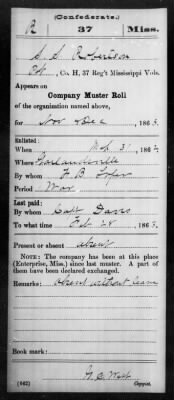 (Confederate.)
R 37 Miss.
S. S. Robertson
Pvt, Co. H, 37 Reg't Mississippi Vols.
Appears on
Company Muster Roll
of the organization named above,
for Nov & Dec, 1863.
Enlisted:
When Mch 31, 1862
Where Garlandville
By whom F. B. Loper
Period War
Last paid:
By whom Capt Davis
To what time Feb 28, 1863.
Present or absent absent
NOTE: The company has been at this place
(Enterprise, Miss.) since last muster. A part of
them have been declared exchanged.
Remarks: absent without leave
Book mark:
(642) Copyist.